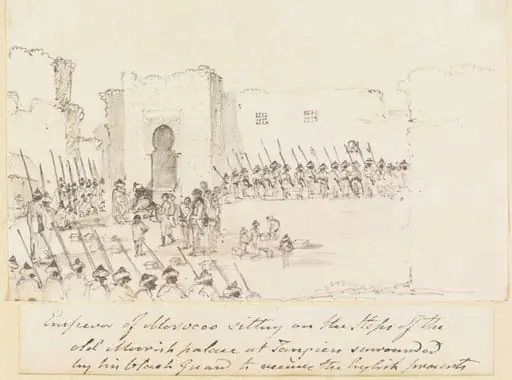 Emperor of Morocco sitting on the steps of the
old Moorish palace at Tangiers surrounded
by his black guard to receive the English presents